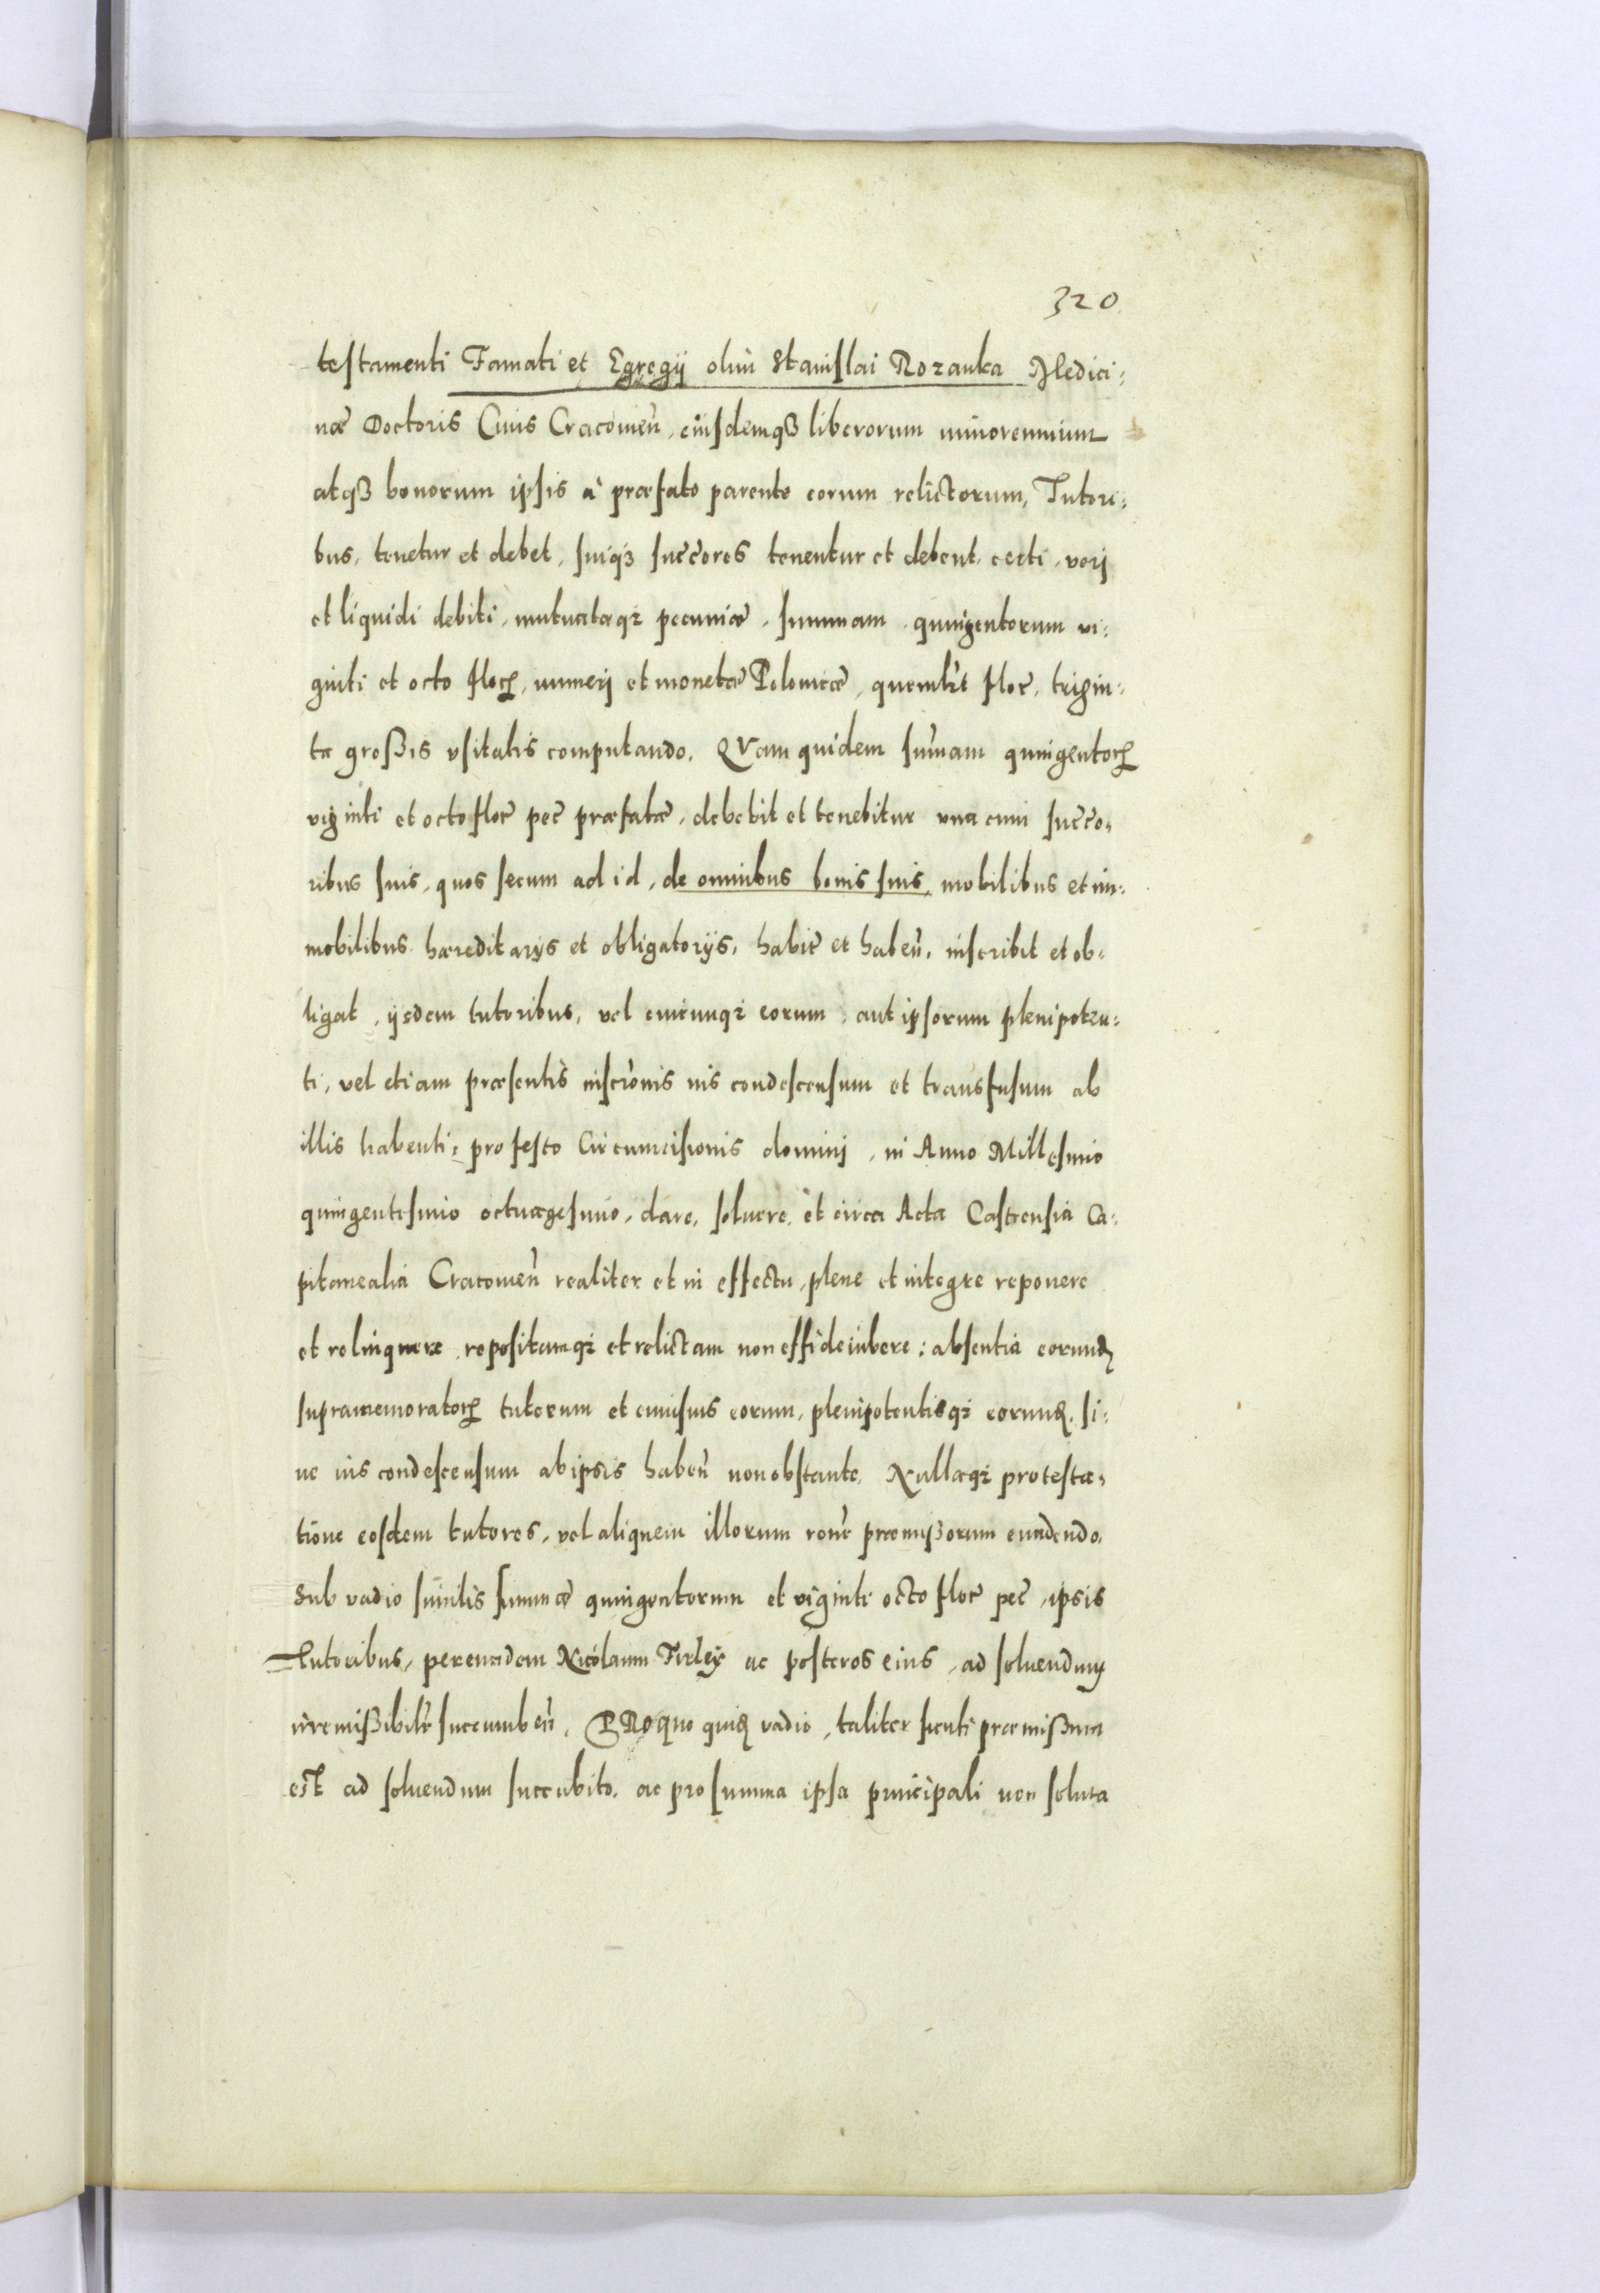 320
testamenti Famati et Egregij olim Stanislai Rozanka Medici:
næ Doctoris Ciuis Cracouień, eiusdemqʒ liberorum minorennium
atqʒ bonorum ipsis à præfato parente eorum relictorum, Tutori:
bus, tenetur et debet, suiqʒ succores tenentur et debent, certi, verj
et liquidi debiti, mutuatæqʒ pecuniæ, summam quingentorum vi:
ginti et octo floꝝ, numerj et monetæ Polonicæ, quemlt flor, trigin:
ta großis vsitatis computando. QVam quidem sum̄am quingentoꝝ
viginti et octo flor pec præfatæ, debebit et tenebitur vna cum succo:
ribus suis, quos secum ad id, de omnibus bonis suis, mobilibus et im:
mobilibus hæreditarijs et obligatorijs, habit et habeń, inscribit et ob:
ligat, ijsdem tutoribus, vel cuicunqʒ eorum, aut ipsorum plenipoten:
ti, vel etiam præsentis inscronis ius condescensum et transfusum ab
illis habenti, pro festo Circumcisionis dominj, in Anno Millesimo
quingentesimo octuagesimo, dare, soluere, et circa Acta Castrensia Ca:
pitanealia Cracouień realiter et in effectu, plene et integre reponere
et relinquere, repositamqʒ et relictam non effideiubere: absentia eorunꝺ
supramemoratoꝝ tutorum et cuiusuis eorum, plenipotentisqʒ eorunꝺ, si:
ue ius condescensum ab ipsis habeń non obstante, Nullaqʒ protesta:
tione eosdem tutores, vel aliquem illorum rońe præmißorum euadendo,
Sub vadio similis summæ quingentorum et viginti octo flor pec, ipsis
Tutoribus, per eundem Nicolaum Firley ac posteros eius, ad soluendum
irremißibilr succumbeń. PRo quo quiꝺ vadio, taliter sicuti præmißum
est ad soluendum succubito, ac pro summa ipsa principali non soluta